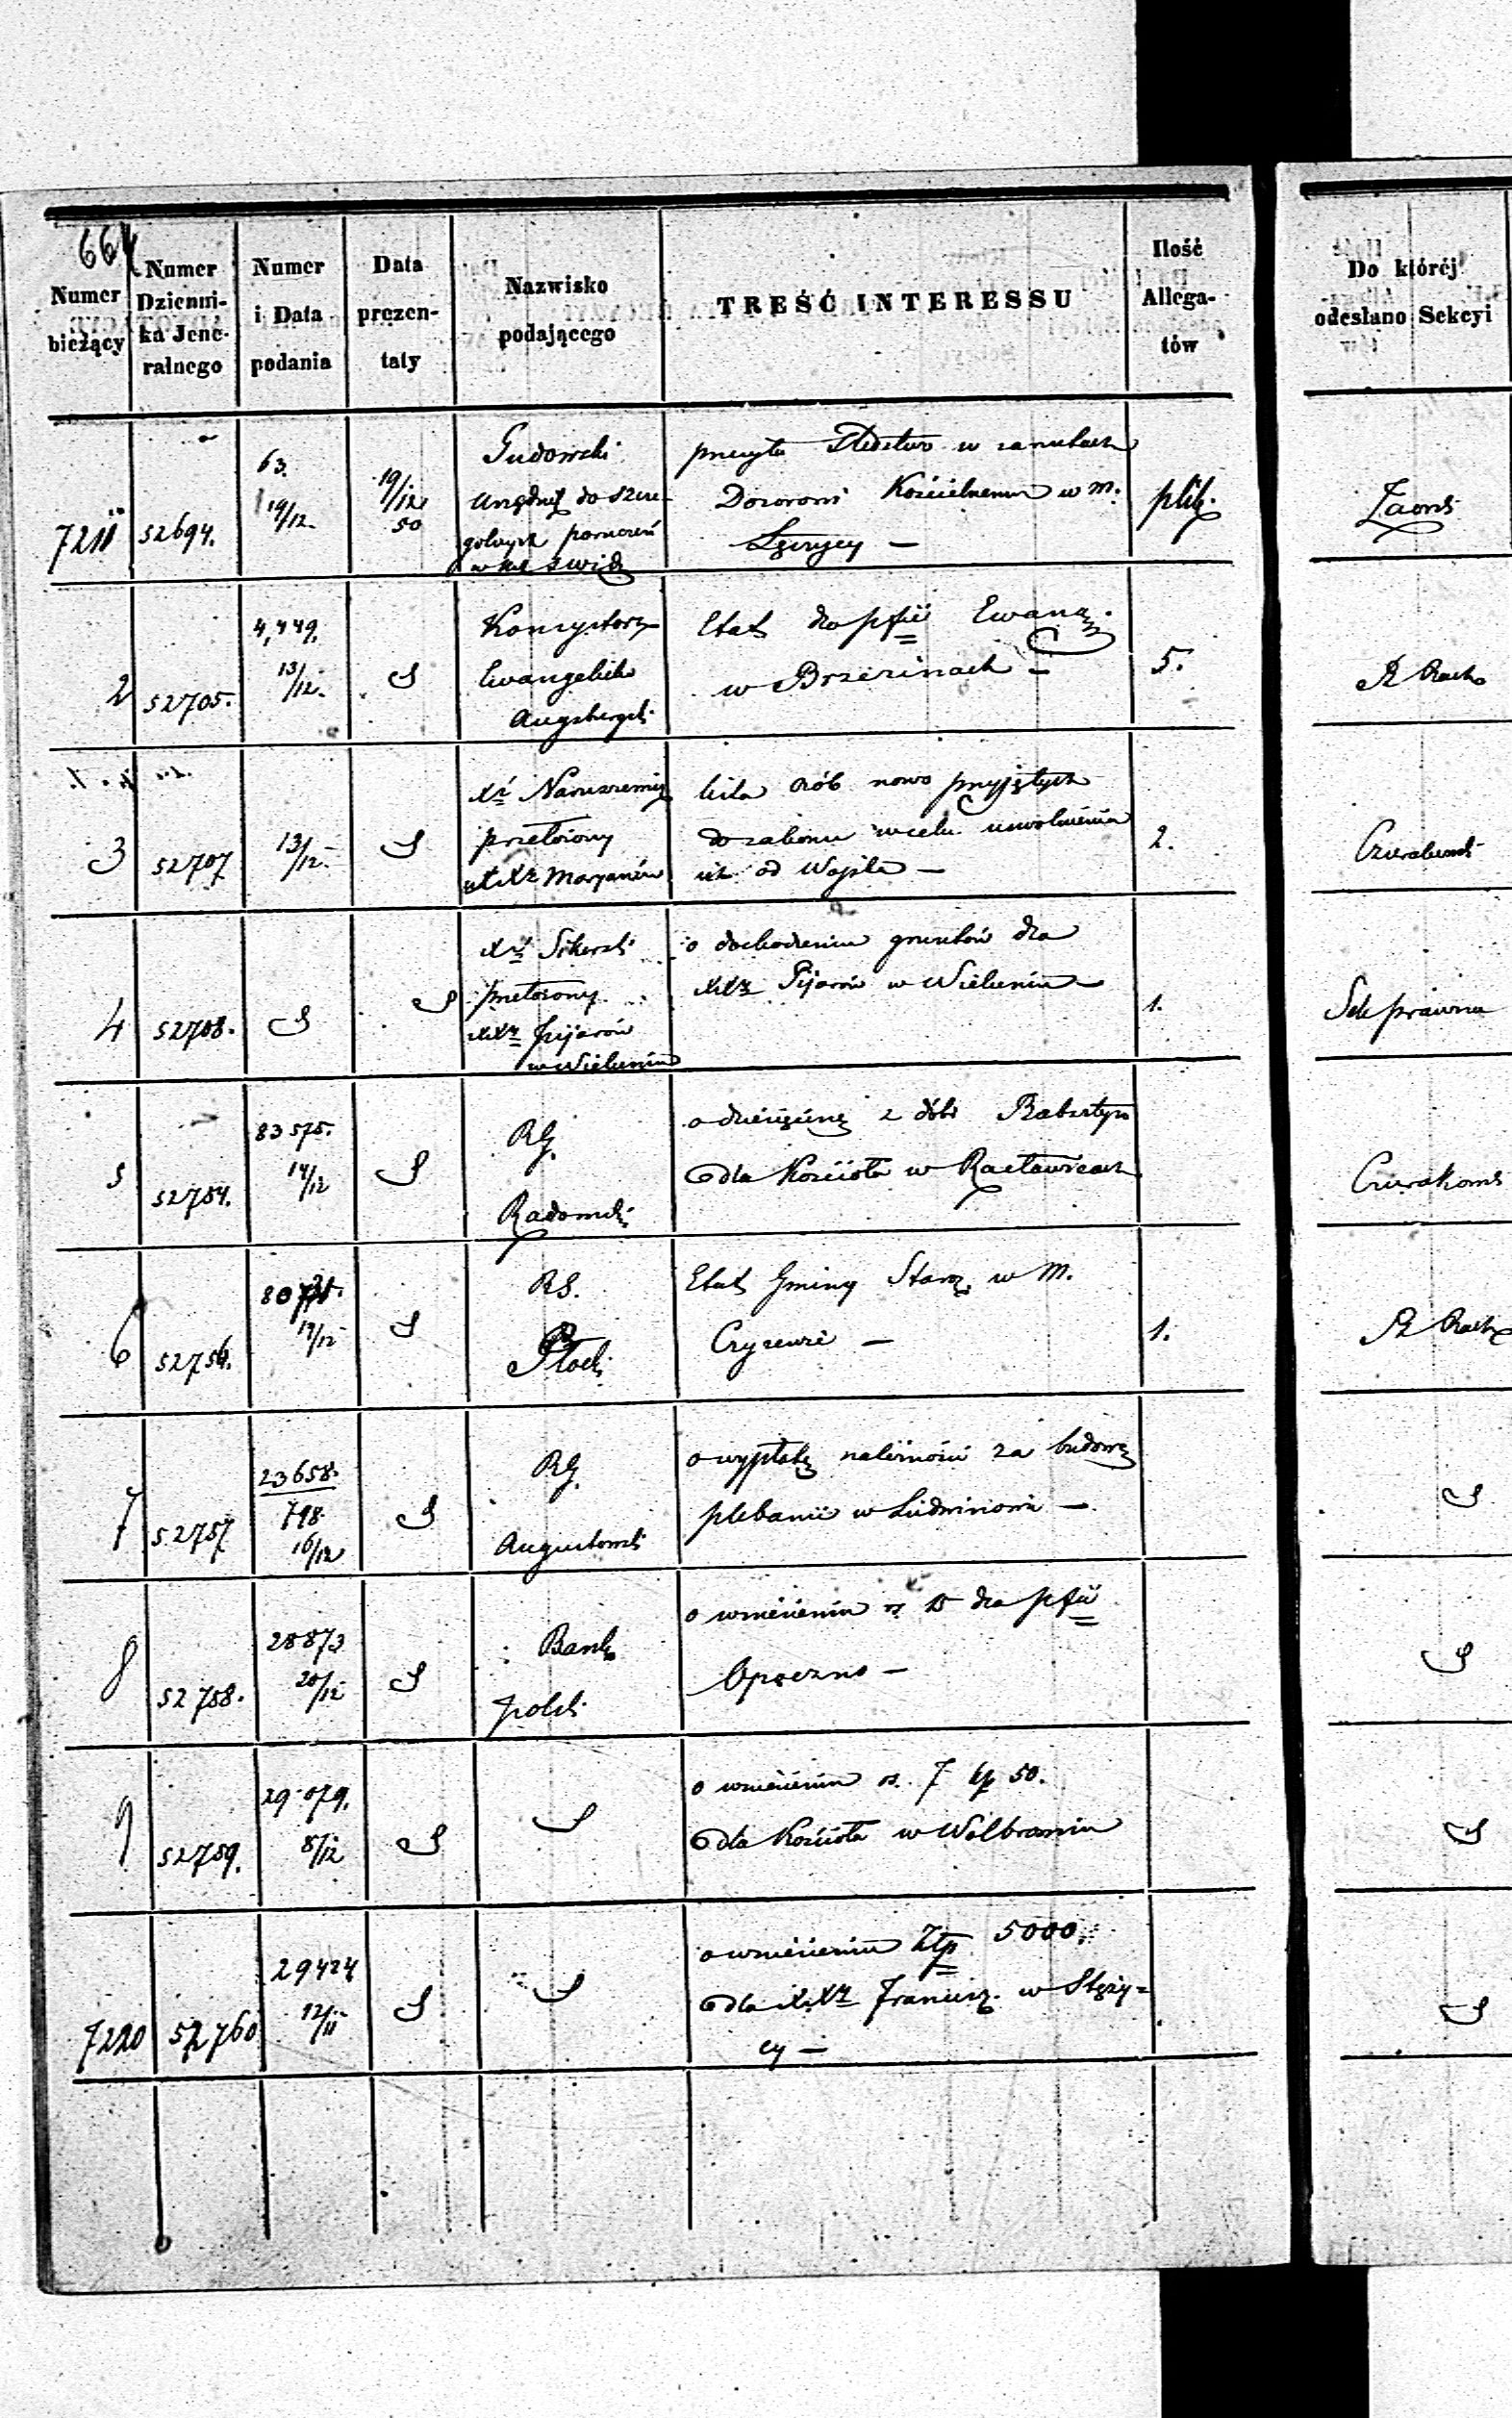 664
Numer bieżący
Numer Dziennika Jeneralnego
Numer i Data podania
Data prezentaty
Nazwisko podającego
TREŚĆ INTERESSU
Ilość Allegatów
Do któréj odesłano Sekcyi
7211 52694. 63. 19/12. 19/12 50
Gudowski
Urzędnik do szcze-
gólnych poruczeń
Śledztwo w zarzutach
Dozorowi Kościelnemu w M.
Łęczycy —
plik
2 52705. 4,449. 13/12.
Konsystorz
Ewangelicko
Augsburgski
Etat dla pfii Ewang.
w Brzezinach —
5.
R Rach
3 52707 13/12.
przełożony
XX Maryanów
lista osób nowo przyjętych
do zakonu w celu uwolnienia
ich od Wojska —
2.
4 52708.
przełożony
XX Pijarów
w Wieluniu
o dochodzeniu gruntów dla
XX Pijarów w Wieluniu —
1.
Sek prawna
5 52754. 83575. 14/12
RG.
Radomski
o dziesięcinę z dóbr Rabsztyn
dla Kościoła w Racławicach
6 52756. 17/12
RG.
Płocki
Etat Gminy Staroz. w M.
Czyżewie —
1.
R Rach
7 52757 23658. 798. 16/12
RG.
Augustowski
o wypłatę należności za budowę
plebanii w Ludwinowie —
8 52758. 28873 20/12
Bank
Polski
o wniesieniu rs. 15 dla pfii
Opoczno —
9 52759. 29079. 8/12
o wniesieniu rs. 7 kp 50.
dla Kościoła w Wolbromiu
7220 52760 29424 12/11
o wniesieniu Złp 5000.
dla XX Francisz. w Stęży-
cy —